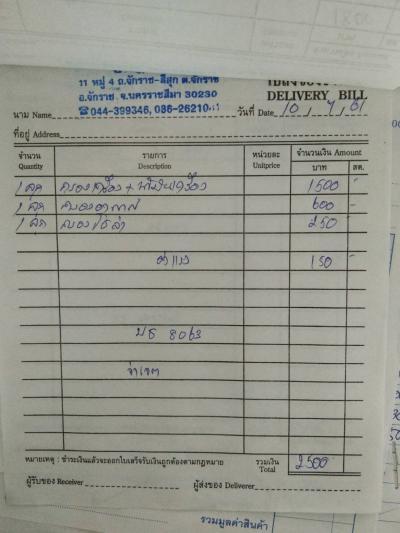 11 หมู่ 4 ถ.จักราช-สีสุก ต.จักราช
อ.จักราช จ.นครราชสีมา 30230
☎044-399346, 086-26210
DELIVERY BILL
นาม Name
วันที่ Date 10, 7, 61
ที่อยู่ Address
จำนวน รายการ หน่วยละ จำนวนเงิน Amount
Quantity Description Unitprice บาท สต.
1 ชุด กรองเครื่อง + น้ำมันเครื่อง 1500 -
1 ชุด กรองอากาศ 600 -
1 ชุด กรองโซล่า 250 -
ค่าแรง 150 -
บธ 8063
หมายเหตุ : ชำระเงินแล้วจะออกใบเสร็จรับเงินถูกต้องตามกฎหมาย รวมเงิน Total 2500
ผู้รับของ Receiver ผู้ส่งของ Deliverer
รวมมูลค่าสินค้า